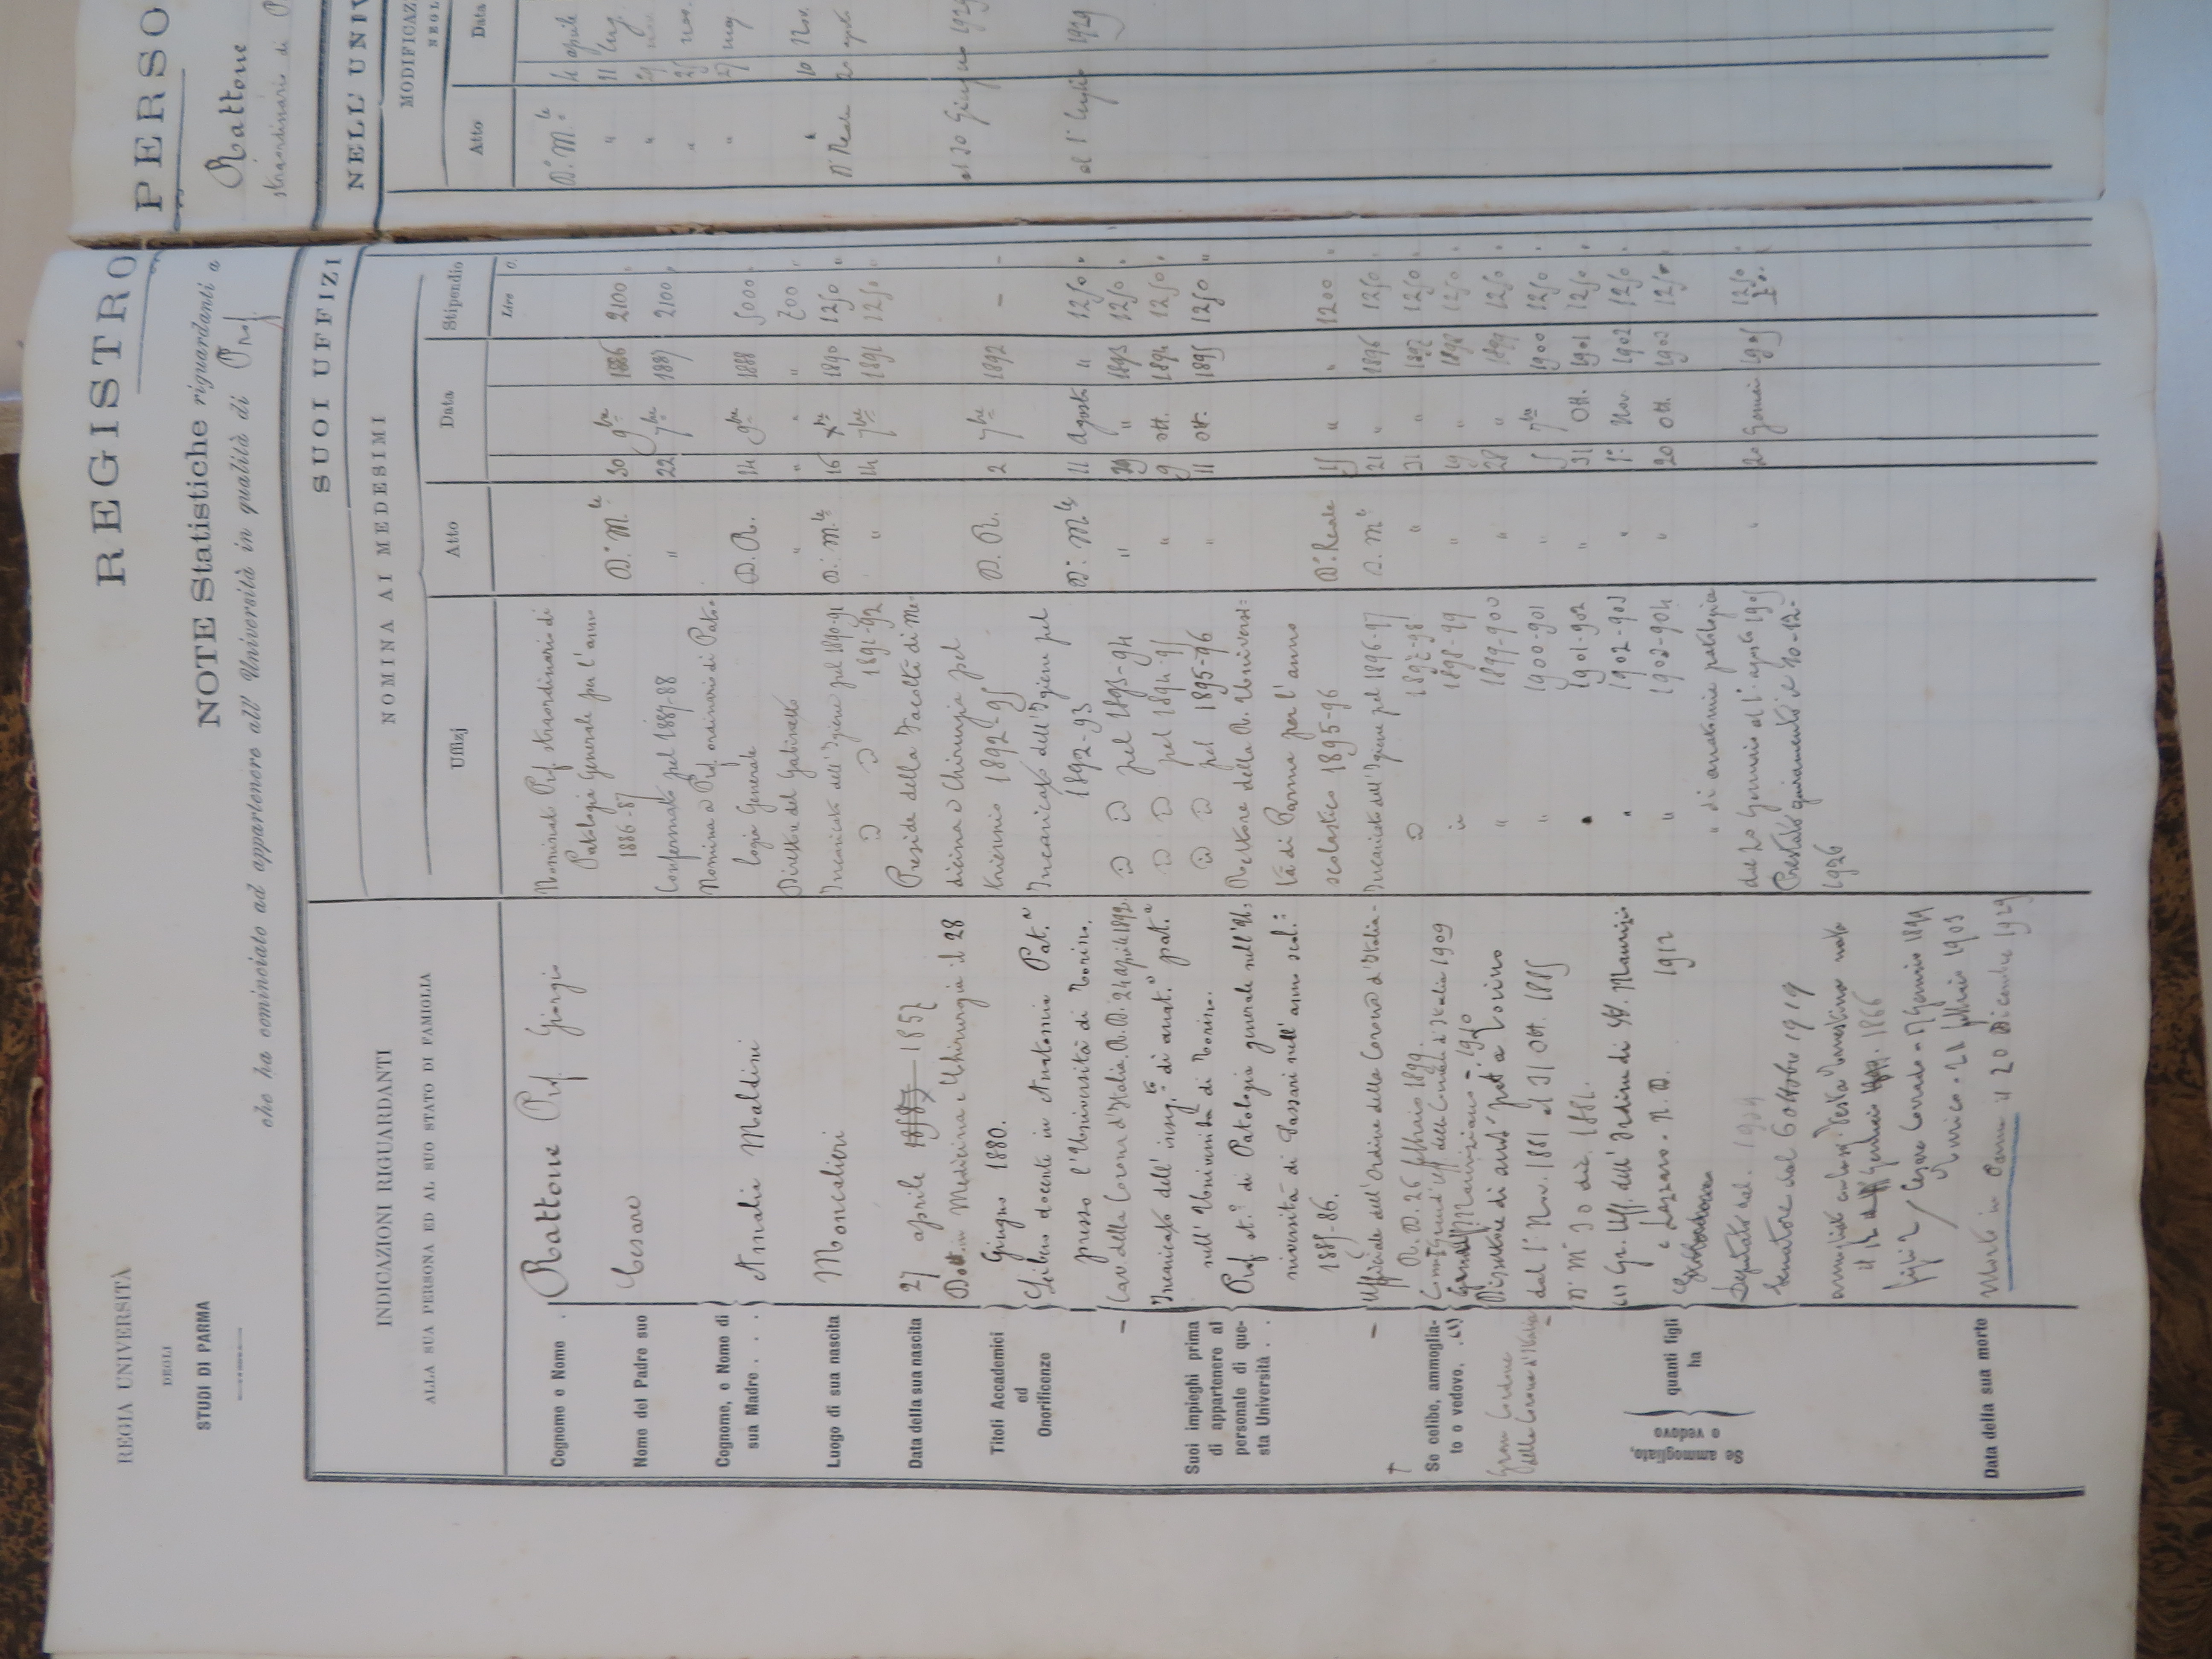 REGIA UNIVERSITÀ
DEGLI
STUDI DI PARMA
REGISTRO
PERSO
NOTE Statistiche riguardanti a
Rattone
che ha cominciato ad appartenere all'Università in qualità di Prof.
straordinario di P
INDICAZIONI RIGUARDANTI
ALLA SUA PERSONA ED AL SUO STATO DI FAMIGLIA
Cognome e Nome . Rattone Prof. Giorgio
Nome del Padre suo Cesare
Cognome, e Nome di
sua Madre . . . . Amalia Maldini
Luogo di sua nascita Moncalieri
Data della sua nascita 27 aprile 1857
Titoli Accademici
ed
Onorificenze
Dott. in Medicina e Chirurgia il 28
Giugno 1880.
Libero docente in Anatomia Pat.a
presso l'Università di Torino.
Cav. della Corona d'Italia. R. D. 24 aprile 1892.
Suoi impieghi prima
di appartenere al
personale di que-
sta Università . .
Incaricato dell' inseg.to di anat.a pat.a
nell' Università di Torino.
Prof. st.o di Patologia generale nell'U-
niversità di Sassari nell' anno scol.:
1885-86.
Uffiziale dell'Ordine della Corona d'Italia -
R. D. 26 febbraio 1899.
Se celibe, ammoglia-
to o vedovo. . (1)
Mauriziano - 1910
Dissettore di anat. pat. a Torino
Gran Cordone
della Corona d'Italia
dal 1° Nov. 1881 al 31 Ott. 1885
D. M. 30 dic. 1881.
(1) Gr. Uff. dell' Ordine di SS. Maurizio
e Lazzaro. R. D. 1912
Se ammogliato,
o vedovo
quanti figli
ha
Deputato dal 1904
Senatore dal 6 ottobre 1919
1866
figli 2 Cesare Corrado
Enrico
Data della sua morte
Morto in Parma il 20 Dicembre 1929
SUOI UFFIZI
NOMINA AI MEDESIMI
Uffizj Atto Data Stipendio
Lire C.
Nominato Prof. straordinario di
Patologia Generale per l'anno
1886-87 D.° M.le 30 9bre 1886 2100 "
Confermato pel 1887-88 " 22 7bre 1887 2100 "
Nomina a Prof. ordinario di Pato-
logia Generale D. R. 14 9bre 1888 5000 "
Direttore del Gabinetto " " " " 700 "
Incaricato dell'Igiene pel 1890-91 D.° M.le 16 Xbre 1890 1250 "
1891-92 " 14 7bre 1891 1250 "
Preside della Facoltà di Me-
dicina e Chirurgia pel
triennio 1892-95 D. R. 2 7bre 1892 — —
Incaricato dell'Igiene pel
1892-93 D.° M.le 11 Agosto " 1250 "
pel 1893-94 " 29 " 1893 1250 "
pel 1894-95 " 9 ott. 1894 1250 "
pel 1895-96 " 11 ott. 1895 1250 "
Rettore della R. Universi-
tà di Parma per l'anno
scolastico 1895-96 D.° Reale 15 " " 1200 "
Incaricato dell'Igiene pel 1896-97 D. M.le 21 " 1896 1250 "
1897-98 " 21 " 1897 1250 "
1898-99 " 19 " 1898 1250 "
" 1899-900 " 28 " 1899 1250 "
" 1900-901 " 5 7bre 1900 1250 "
" 1901-902 " 31 Ott. 1901 1250 "
" 1902-903 " 1° Nov 1902 1250 "
" 1903-904 " 20 Ott. 1903 1250 "
" di anatomia patologica
dal 20 Gennaio al 1° agosto 1905 " 20 Gennaio 1905 1250 "
Prestato giuramento il 10-12-
1926
NELL' UNIV
MODIFICAZ
NEGL
Atto Data
D.° M.le 4 aprile
" 11 lug.
" 29 nov.
" 25 nov.
" 27 mag.
" 10 Nov.
D.° Reale 20 agosto
al 30 Giugno 1929
al 1° luglio 1929